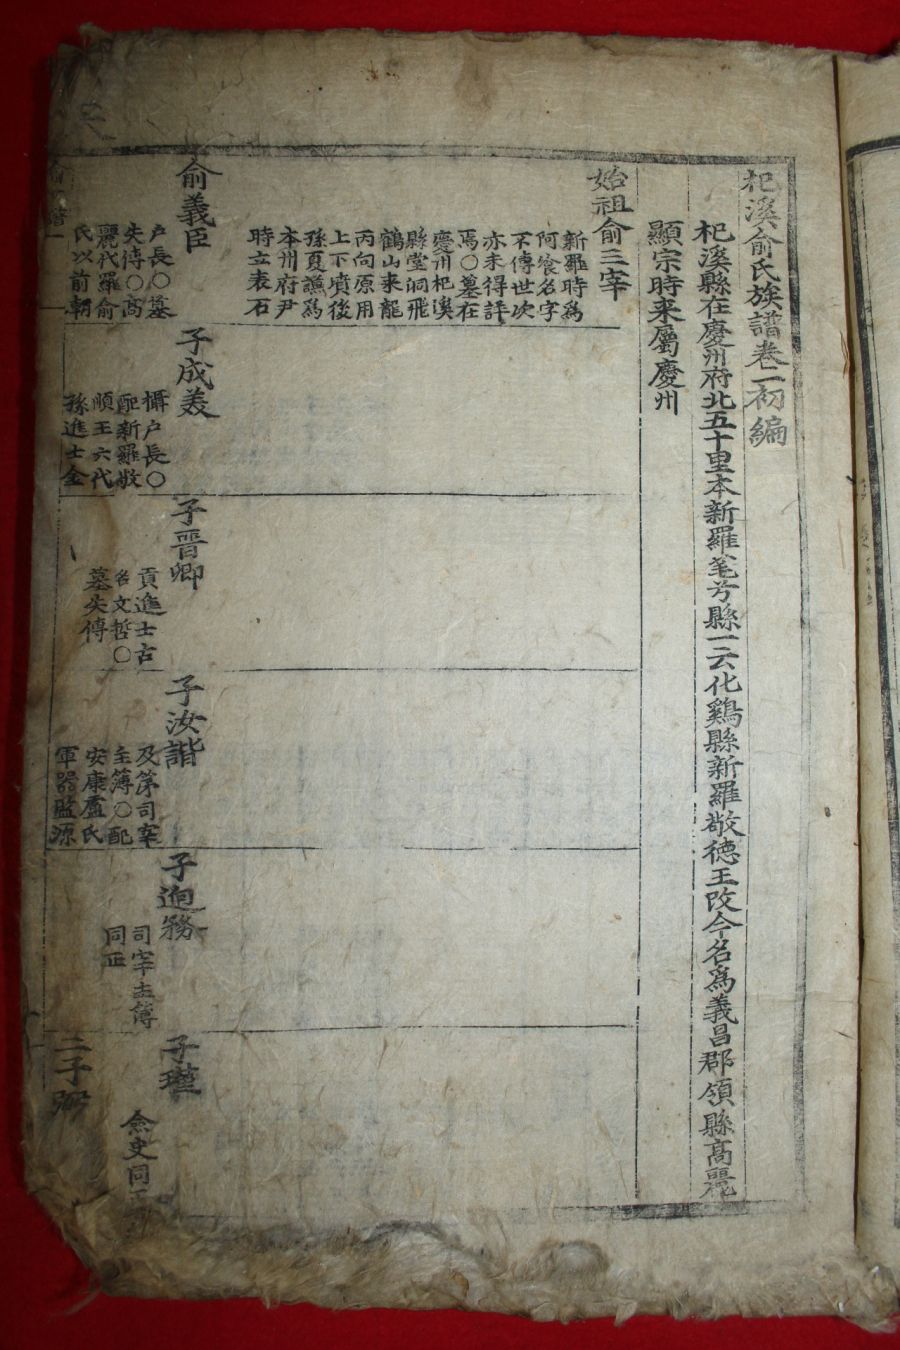 杞溪俞氏族譜卷二初編
杞溪縣在慶州府北五十里本新羅芼兮縣一云化鷄縣新羅敬德王改今名爲義昌郡領縣高麗
顯宗時來屬慶州
始祖俞三宰
新羅時爲
阿飡名字
不傳世次
亦未得評
焉○墓在
慶州杞溪
縣堂洞飛
鶴山来龍
丙向原用
上下墳後
孫夏謙爲
本州府尹
時立表石
俞義臣
户長○墓
失傳○高
麗代羅俞
氏以前朝
子成美
懾户長○
配新羅敬
順王六代
孫進士金
子晋卿
貢進士古
名文哲○
墓失傳
子汝諧
及第司宰
主簿○配
安康盧氏
軍器監源
子迪務
司宰主簿
同正
子瑾
僉史同正
二子卿